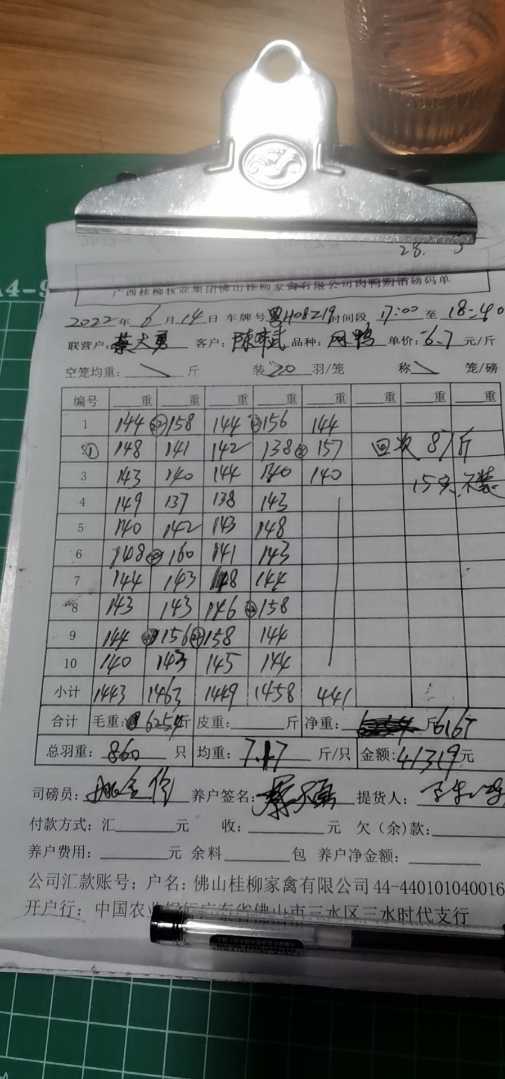 28.
广西桂柳牧业集团佛山桂柳家禽有限公司肉鸭购销磅码单
2022年6月14日 车牌号 粤H08Z19 时间段 17:00 至 18:40
联营户: 客户: 品种: 单价: 6.7 元/斤
空笼均重: 斤 装 20 羽/笼 称 笼/磅
编号 重 重 重 重 重 重 重 重
1 144 158 144 156 144
2 ① 148 141 142 138 157 回收 87斤
3 143 140 144 140 140 15只 不装
4 149 137 138 143
5 140 142 143 148
6 148 160 141 143
7 144 143 148 144
8 143 143 146 158
9 144 156 158 144
10 140 143 145 144
小计 1443 1463 1449 1458 441
合计 毛重: 6254斤 皮重: 斤 净重: 斤 6167
总羽重: 860 只 均重: 7.17 斤/只 金额: 41319元
司磅员: 养户签名: 提货人:
付款方式: 汇 元 收: 元 欠(余)款:
养户费用: 元 余料 包 养户净金额:
公司汇款账号: 户名: 佛山桂柳家禽有限公司 44-440101040016
开户行: 中国农业银行广东省佛山市三水区三水时代支行